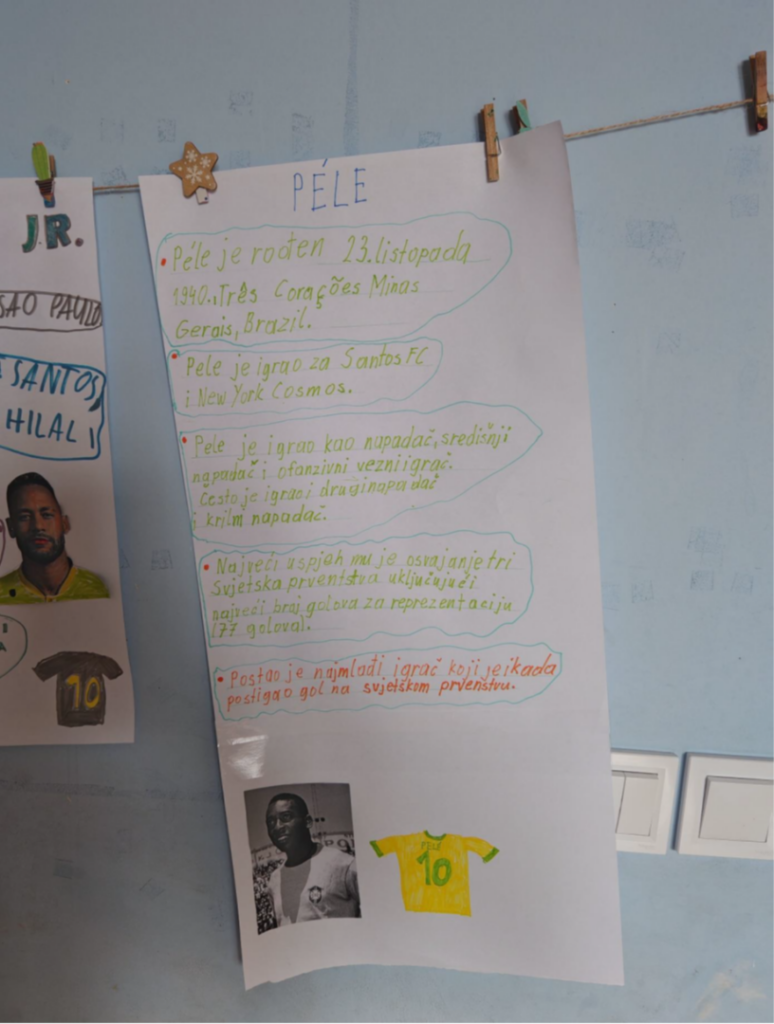 J.R.
SAO PAULO
SANTOS,
HILAL I
10
PÉLE
• Péle je rođen 23. listopada
1940., Três Corações Minas
Gerais, Brazil.
• Pele je igrao za Santos FC
i New York Cosmos.
• Pele je igrao kao napadač, središnji
napadač i ofanzivni vezni igrač.
Često je igrao i drugi napadač
i krilni napadač.
• Najveći uspjeh mu je osvajanje tri
Svjetska prventstva uključujući
najveći broj golova za reprezentaciju
(77 golova).
• Postao je najmlađi igrač koji je ikada
postigao gol na svjetskom prvenstvu.
PELÉ
10